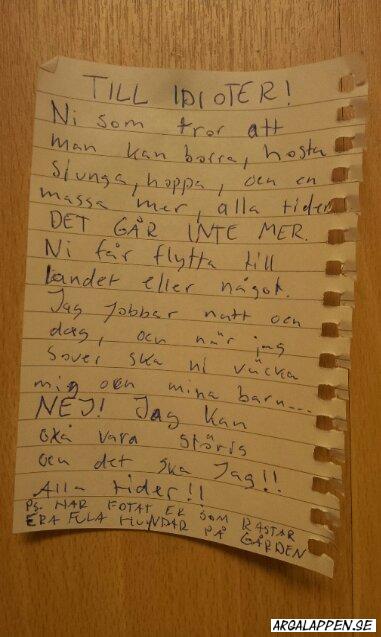 TILL IDIOTER!
Ni som tror att
man kan borra, hosta
sjunga, hoppa, och en
massa mer, alla tider
DET GÅR INTE MER.
Ni får flytta till
landet eller något.
Jag jobbar natt och
dag, och när jag
sover ska ni väcka
mig och mina barn...
NEJ! Jag kan
oxå vara störis
och det ska Jag!!
Alla tider!!
Ps. HAR FOTAT ER SOM RASTAR
ERA FULA HUNDAR PÅ GÅRDEN
ARGALAPPEN.SE